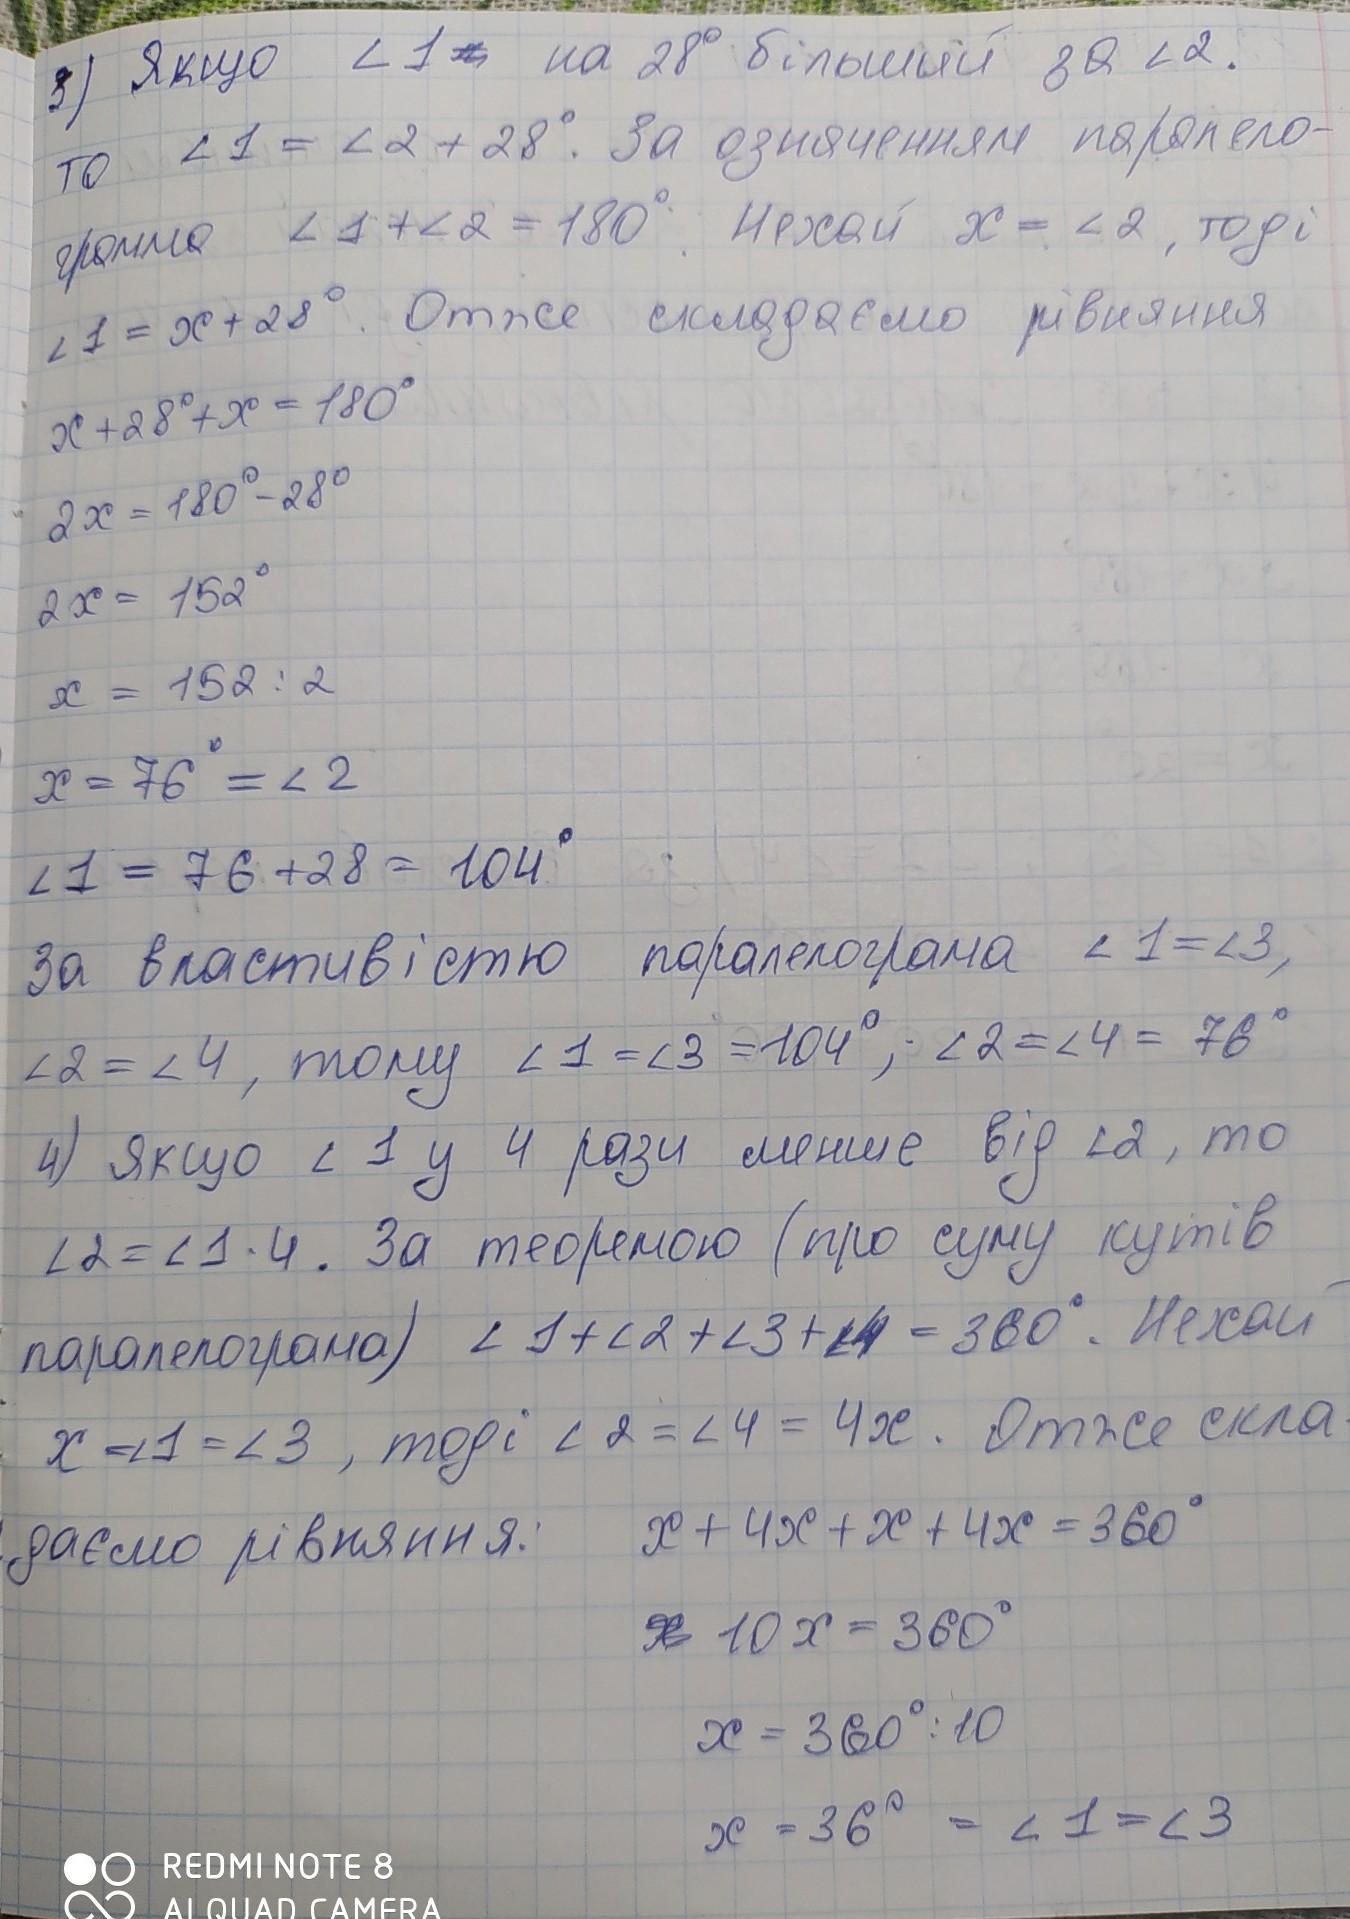 3) Якщо ∠1 на 28° більший за ∠2.
то ∠1 = ∠2 + 28°. За означенням парапело-
грамма ∠1 + ∠2 = 180°. Нехай x = ∠2, тоді
∠1 = x + 28°. Отже складаємо рівняння
x + 28° + x = 180°
2x = 180° - 28°
2x = 152°
x = 152 : 2
x = 76° = ∠2
∠1 = 76 + 28 = 104°
За властивістю паралелограма ∠1 = ∠3,
∠2 = ∠4, тому ∠1 = ∠3 = 104°; ∠2 = ∠4 = 76°
4) Якщо ∠1 у 4 рази менше від ∠2, то
∠2 = ∠1 · 4. За теоремою (про суму кутів
паралелограма) ∠1 + ∠2 + ∠3 + ∠4 = 360°. Нехай
x = ∠1 = ∠3, тоді ∠2 = ∠4 = 4x. Отже скла-
даємо рівняння: x + 4x + x + 4x = 360°
10x = 360°
x = 360° : 10
x = 36° = ∠1 = ∠3
REDMI NOTE 8
AI QUAD CAMERA